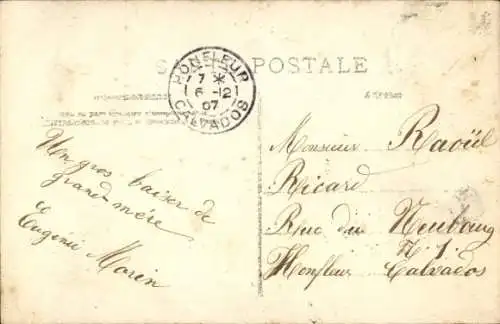 POSTALE
HONFLEUR
7 *
6 -12
07
CALVADOS
Un gros baiser de
grand-mère
Eugénie Morin
Monsieur Raoül
Ricard
Rue du Neubourg
N. 1.
Honfleur Calvados